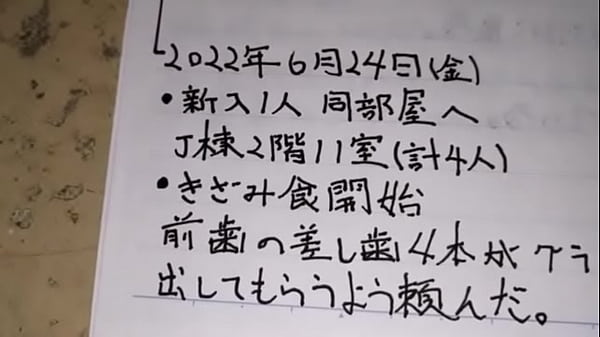 2022年6月24日(金)
•新入1人 同部屋へ
J棟2階11室(計4人)
•きざみ食開始
前歯の差し歯4本がグラ
出してもらうよう頼んだ。